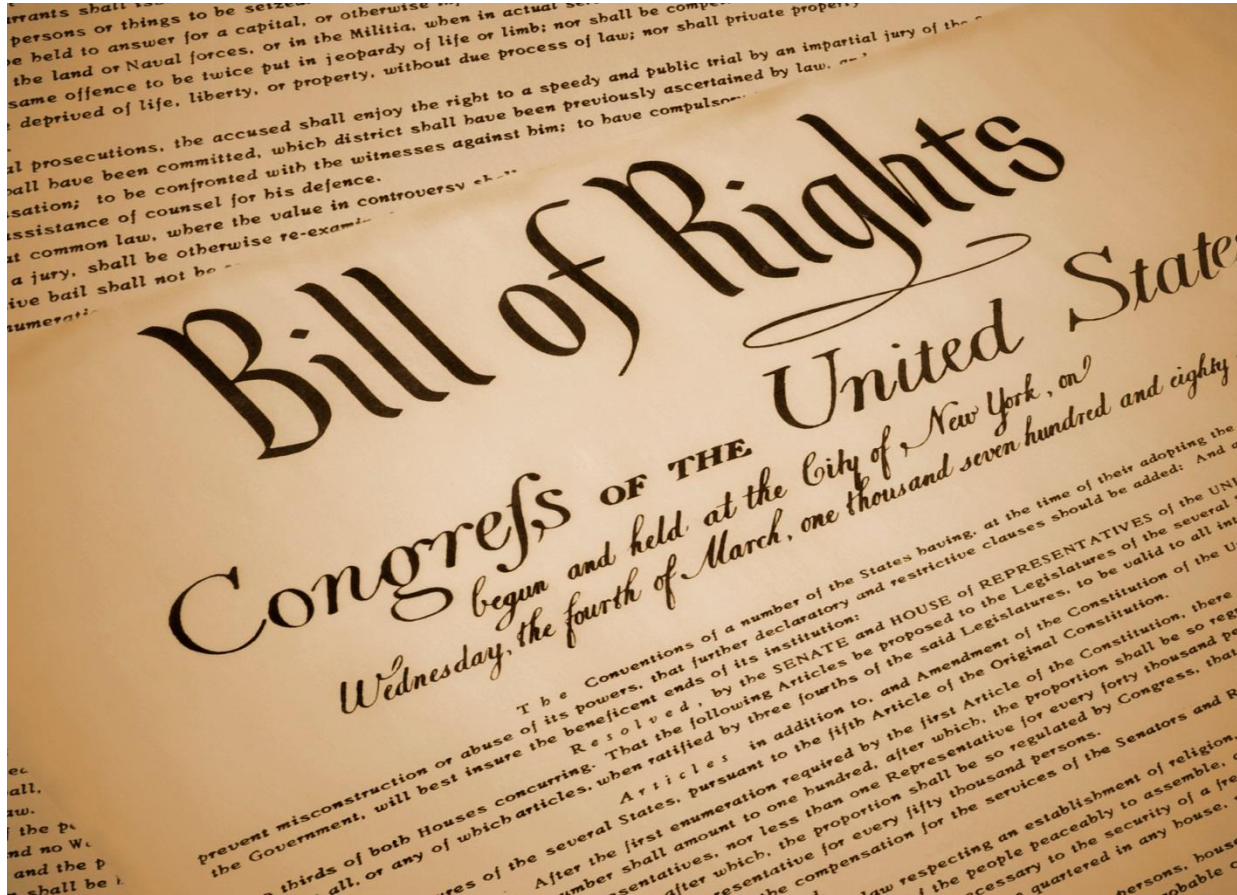 rrants shall iss
persons or things to be seize
be held to answer for a capital, or otherwise
the land or Naval forces, or in the Militia, when in actual se
same offence to be twice put in jeopardy of life or limb; nor shall be compe
deprived of life, liberty, or property, without due process of law; nor shall private property
al prosecutions, the accused shall enjoy the right to a speedy and public trial by an impartial jury of the
hall have been committed, which district shall have been previously ascertained by law, an
sation; to be confronted with the witnesses against him; to have compulsory
assistance of counsel for his defence.
at common law, where the value in controversy shall
a jury, shall be otherwise re-exami
ive bail shall not be
numerati
Bill of Rights
Congreſs OF THE United State
begun and held at the City of New York, on
Wednesday, the fourth of March, one thousand seven hundred and eighty
The Conventions of a number of the States having, at the time of their adopting the
prevent misconstruction or abuse of its powers, that further declaratory and restrictive clauses should be added: And
the Government, will best insure the beneficent ends of its institution:
Resolved, by the SENATE and HOUSE of REPRESENTATIVES of the UNI
thirds of both Houses concurring. That the following Articles be proposed to the Legislatures of the several
all, or any of which articles, when ratified by three fourths of the said Legislatures, to be valid to all int
Articles in addition to, and Amendment of the Constitution of the U
res of the several States, pursuant to the fifth Article of the Original Constitution.
After the first enumeration required by the first Article of the Constitution, there
mber shall amount to one hundred, after which, the proportion shall be so reg
sentatives, nor less than one Representative for every forty thousand pe
after which, the proportion shall be so regulated by Congress, that
resentative for every fifty thousand persons.
the compensation for the services of the Senators and R
law respecting an establishment of religion,
of the people peaceably to assemble,
cessary to the security of a fre
quartered in any house,
persons, hous
ec
all,
aw.
f the p
nd no W
and the p
shall be